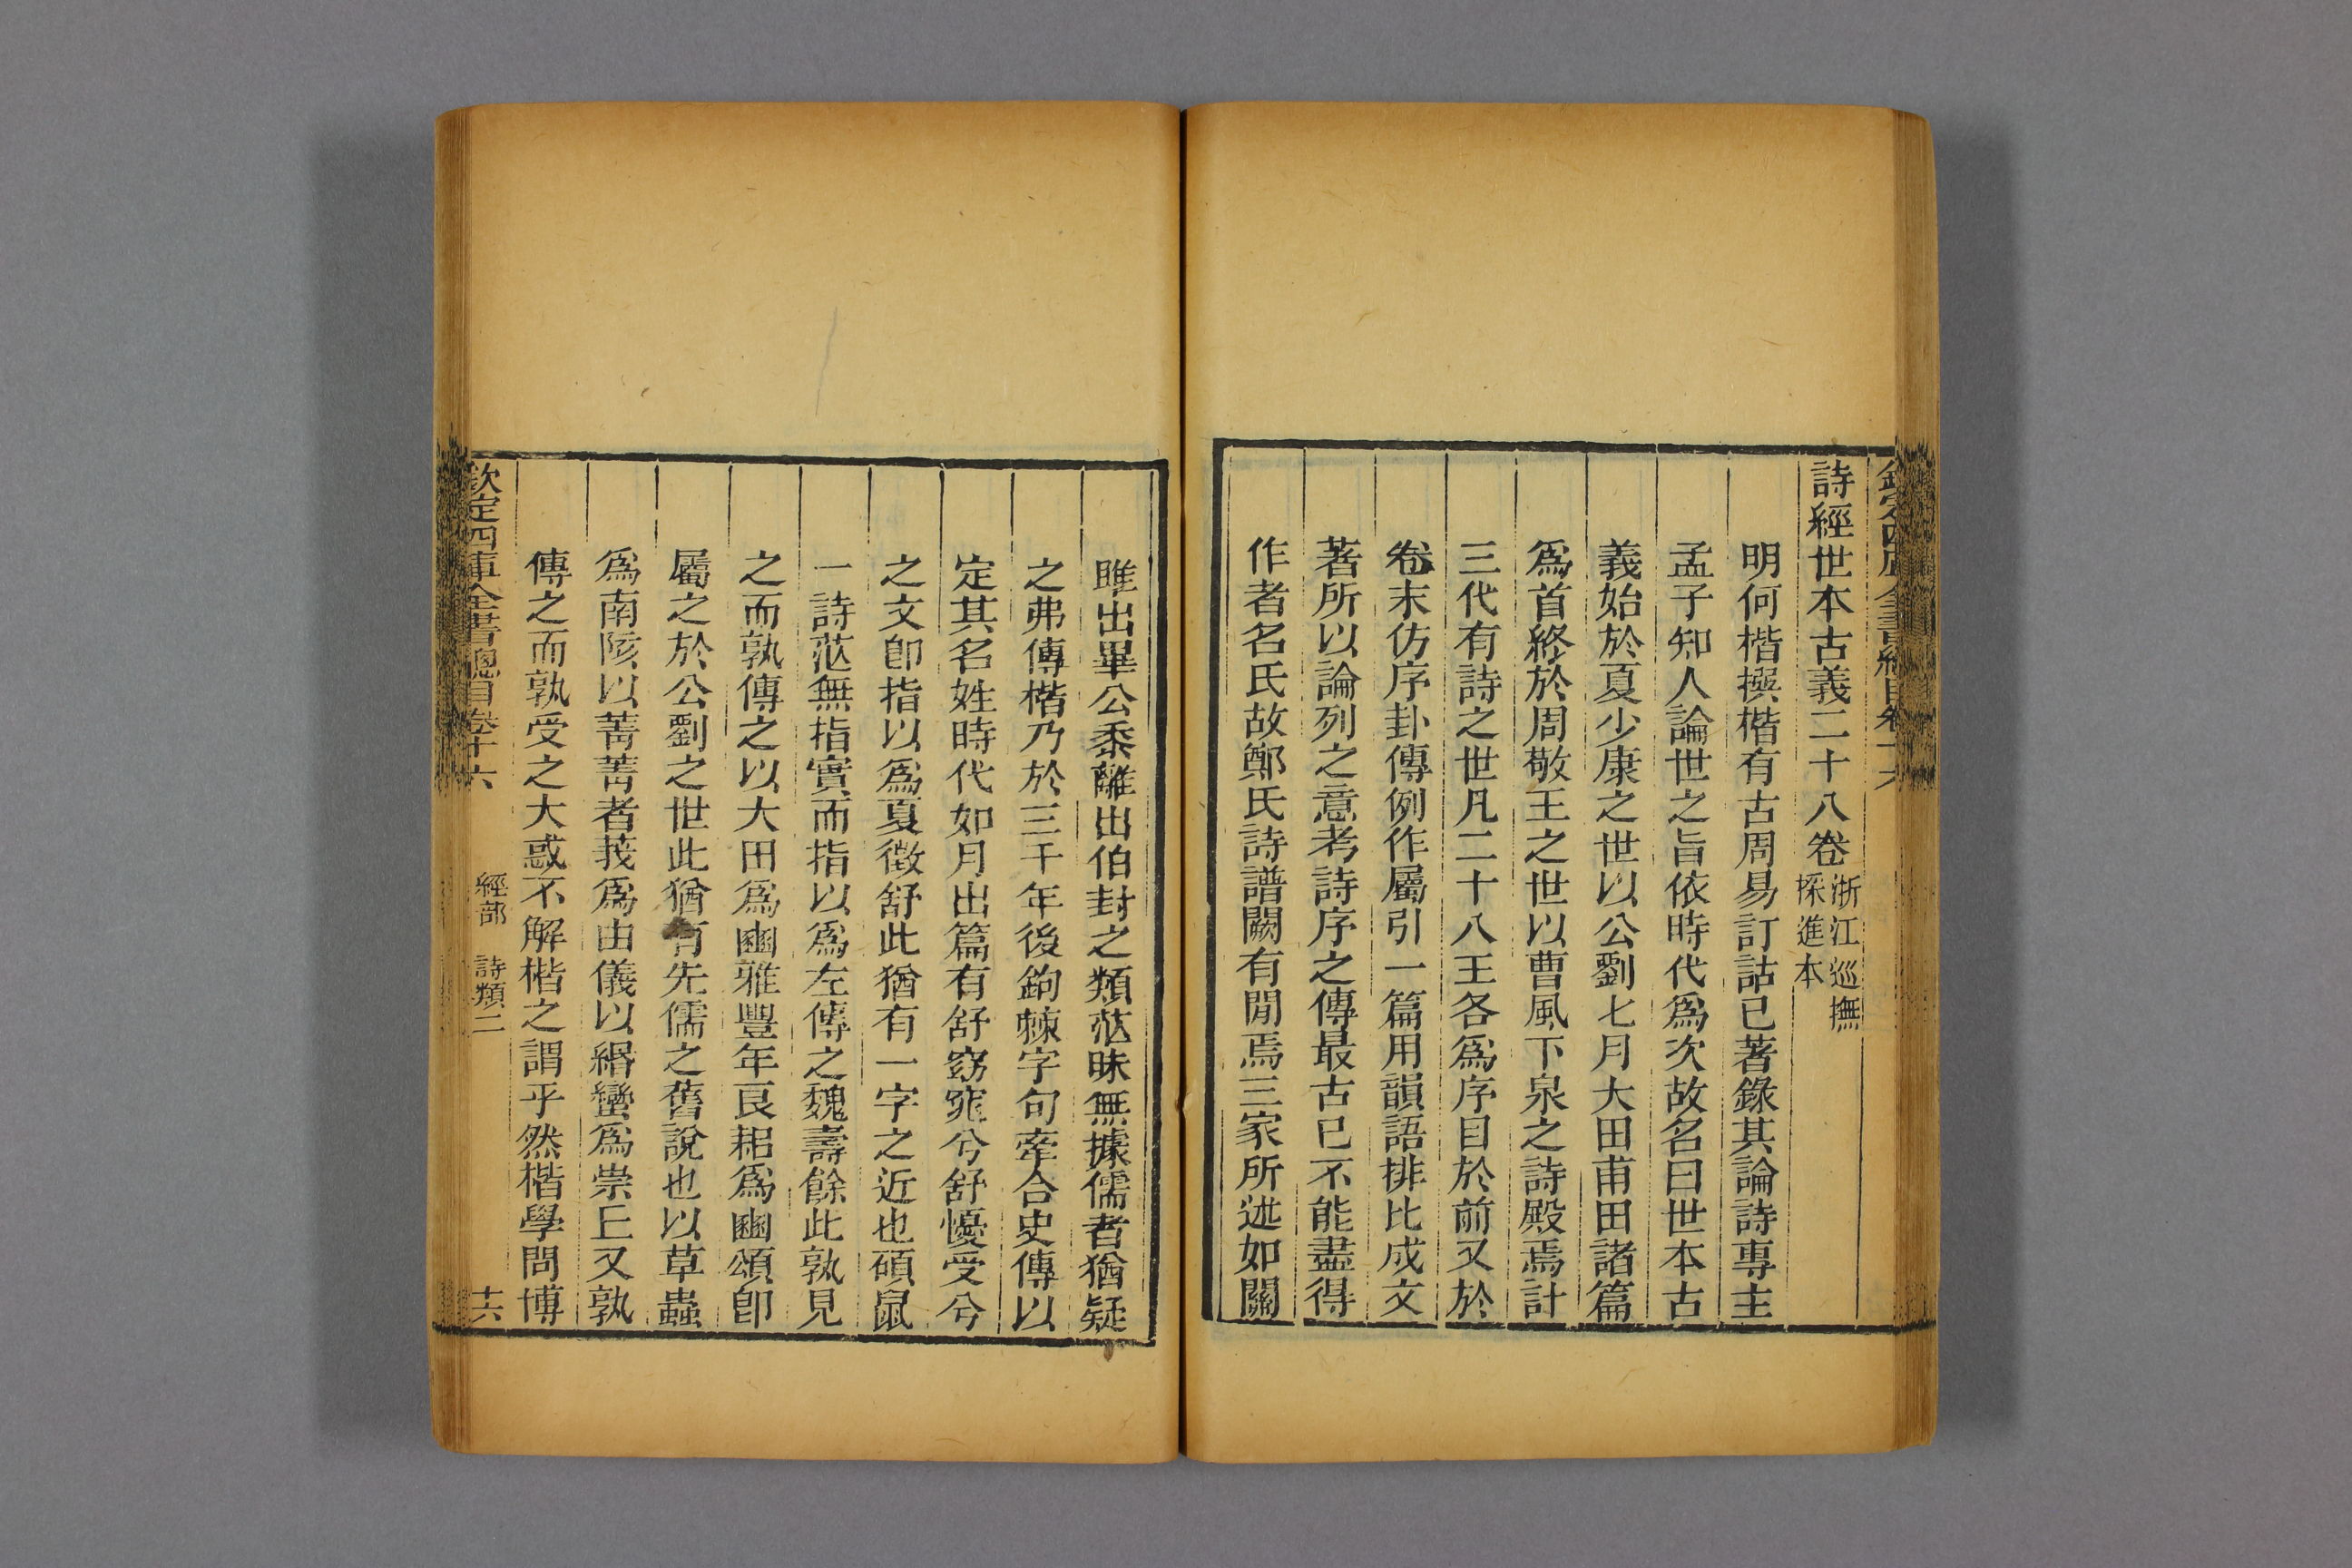 詩經世本古義二十八卷浙江巡撫採進本
明何楷撰楷有古周易訂詁已著錄其論詩專主
孟子知人論世之旨依時代爲次故名曰世本古
義始於夏少康之世以公劉七月大田甫田諸篇
爲首終於周敬王之世以曹風下泉之詩殿焉計
三代有詩之世凡二十八王各爲序目於前又於
卷末仿序卦傳例作屬引一篇用韻語排比成文
著所以論列之意考詩序之傳最古已不能盡得
作者名氏故鄭氏詩譜闕有閒焉三家所述如關
雎出畢公黍離出伯封之類茫昧無據儒者猶疑
之弗傳楷乃於三千年後鉤棘字句牽合史傳以
定其名姓時代如月出篇有舒窈窕兮舒懮受兮
之文卽指以爲夏徵舒此猶有一字之近也碩鼠
一詩茫無指實而指以爲左傳之魏壽餘此孰見
之而孰傳之以大田爲豳雅豐年良耜爲豳頌卽
屬之於公劉之世此猶有先儒之舊說也以草蟲
爲南陔以菁菁者莪爲由儀以緡蠻爲崇丘又孰
傳之而孰受之大惑不解楷之謂乎然楷學問博
欽定四庫全書總目卷十六 經部 詩類二 十六